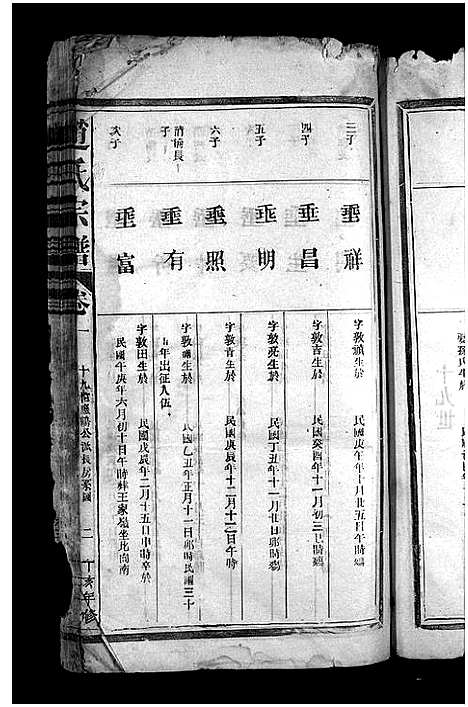 三子
垂祥
字敦禎生於 民國庚午年十月廿五日午時
四子
垂昌
字敦吉生於 民國癸酉年十一月初三巳時
五子
垂明
字敦亮生於 民國丁丑年十一月廿日卯時
六子
垂照
字敦青生於 民國庚辰年十二月十二日午時
清倫長子
垂有
生於 民國乙丑年正月十一日卯時民國三十
五年出征入伍
次子
垂富
字敦田生於 民國戊辰年二月十五日申時卒於
民國午庚年六月初十日午時葬王家嶺坐北向南
氏宗譜
卷一
十九世
二
亥年修
十九世